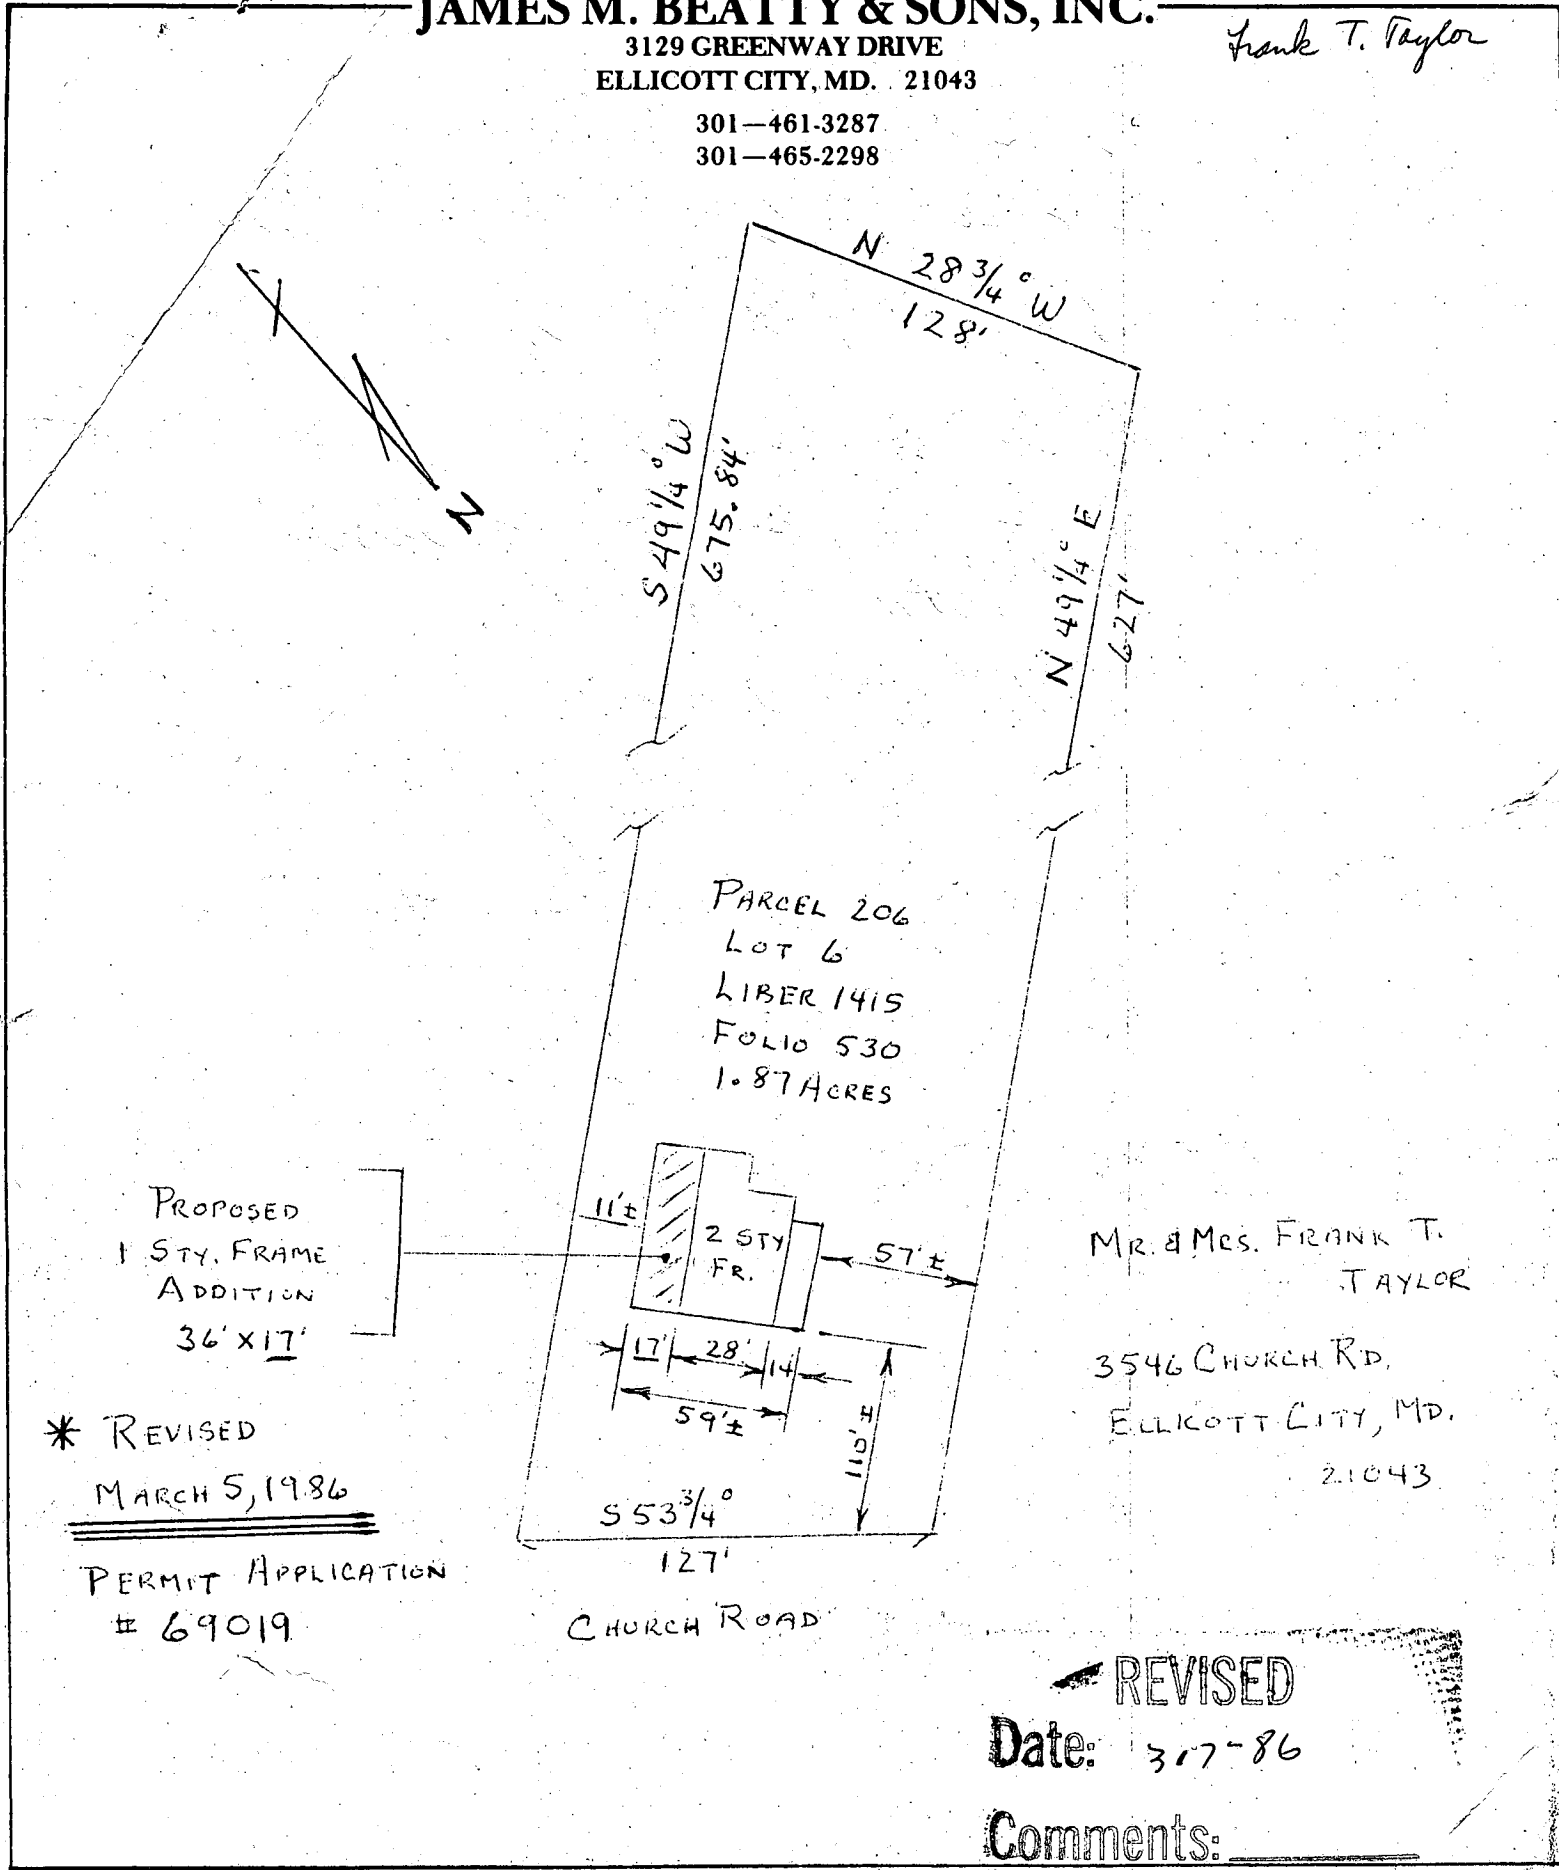 JAMES M. BEATTY & SONS, INC.
3129 GREENWAY DRIVE
ELLICOTT CITY, MD. 21043
301—461-3287
301—465-2298
Frank T. Taylor
N 28 3/4° W
128'
N
S 49 1/4° W
675.84'
N 49 1/4° E
627'
PARCEL 206
LOT 6
LIBER 1415
FOLIO 530
1.87 ACRES
PROPOSED
1 STY. FRAME
ADDITION
36' X 17'
11'±
2 STY
FR.
57'±
17' 28' 14
59'±
110'±
MR. & MRS. FRANK T.
TAYLOR
3546 CHURCH RD.
ELLICOTT CITY, MD.
21043
* REVISED
MARCH 5, 1986
PERMIT APPLICATION
# 69019
S 53 3/4°
127'
CHURCH ROAD
REVISED
Date: 3-7-86
Comments: